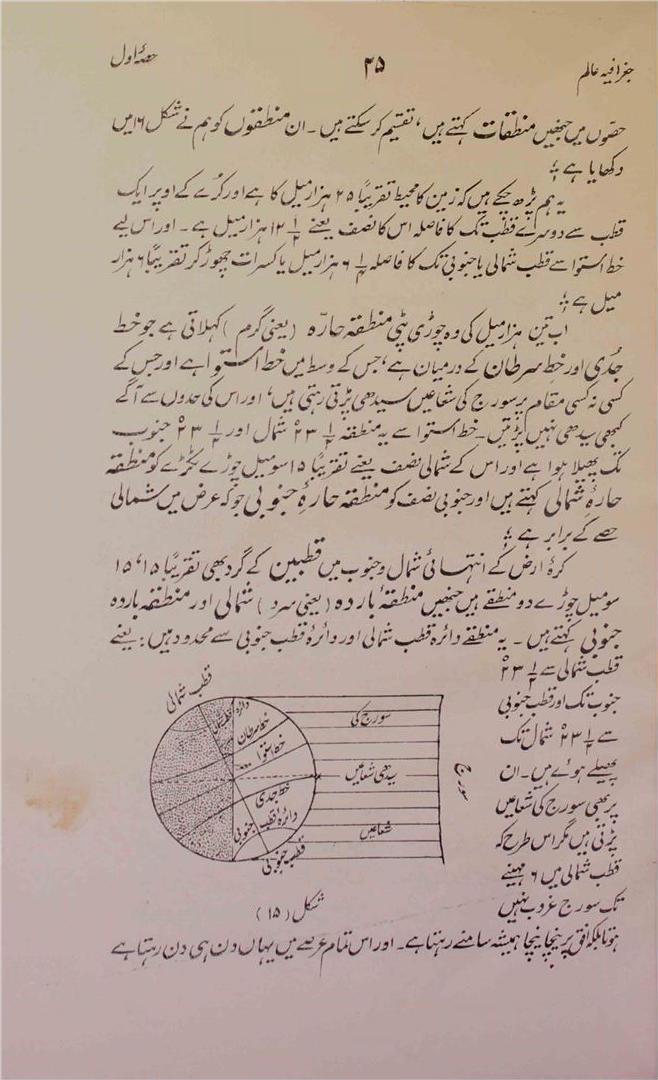 جغرافیہ عالم ۲۵ حصۂ اول
حصّوں میں جنھیں منطقات کہتے ہیں، تقسیم کرسکتے ہیں۔ ان منطقوں کو ہم نے شکل ۱۶ میں
دکھایا ہے؛
یہ ہم پڑھ چکے ہیں کہ زمین کا محیط تقریباً ۲۵ ہزار میل کا ہے اور کُرے کے اوپر ایک
قطب سے دوسرے قطب تک کا فاصلہ اس کا نصف یعنے ۱۲½ ہزار میل ہے۔ اور اس لیے
خط استوا سے قطب شمالی یا جنوبی تک کا فاصلہ ۶¼ ہزار میل یا کسرات چھوڑ کر تقریباً ۶ ہزار
میل ہے؛
اب تین ہزار میل کی وہ چوڑی پٹی منطقۂ حارّہ (یعنی گرم) کہلاتی ہے جو خط
جُدی اور خطِ سرطان کے درمیان ہے، جس کے وسط میں خط استوا ہے اور جس کے
کسی نہ کسی مقام پر سورج کی شعاعیں سیدھی پڑتی رہتی ہیں، اور اس کی حدوں سے آگے
کبھی سیدھی نہیں پڑتیں۔ خط استوا سے یہ منطقہ ۲۳½° شمال اور ۲۳½° جنوب
تک پھیلا ہوا ہے اور اس کے شمالی نصف یعنے تقریباً ۱۵ سو میل چوڑے ٹکڑے کو منطقہ
حارہِ شمالی کہتے ہیں اور جنوبی نصف کو منطقۂ حارہِ جنوبی جو کہ عرض میں شمالی
حصے کے برابر ہے؛
کرۂ ارض کے انتہائی شمال و جنوب میں قطبین کے گرد بھی تقریباً ۱۵، ۱۵
سو میل چوڑے دو منطقے ہیں جنھیں منطقۂ باردہ (یعنی سرد) شمالی اور منطقۂ باردہ
جنوبی کہتے ہیں۔ یہ منطقے دائرۂ قطب شمالی اور دائرۂ قطب جنوبی سے محدود ہیں: یعنے
قطب شمالی سے ۲۳½°
جنوب تک اور قطب جنوبی
سے ۲۳½° شمال تک
پھیلے ہوئے ہیں۔ ان
پر بھی سورج کی شعاعیں
پڑتی ہیں مگر اس طرح کہ
قطب شمالی میں ۶ مہینے
تک سورج غروب نہیں
ہوتا بلکہ افق پر نیچا نیچا ہمیشہ سامنے رہتا ہے۔ اور اس تمام عرصے میں یہاں دن ہی دن رہتا ہے
قطب شمالی
دائرۂ قطب شمالی
خط سرطان
خط استوا
خط جدی
دائرۂ قطب جنوبی
قطب جنوبی
سورج کی
سیدھی شعاعیں
شعاعیں
سورج
شکل (۱۵)